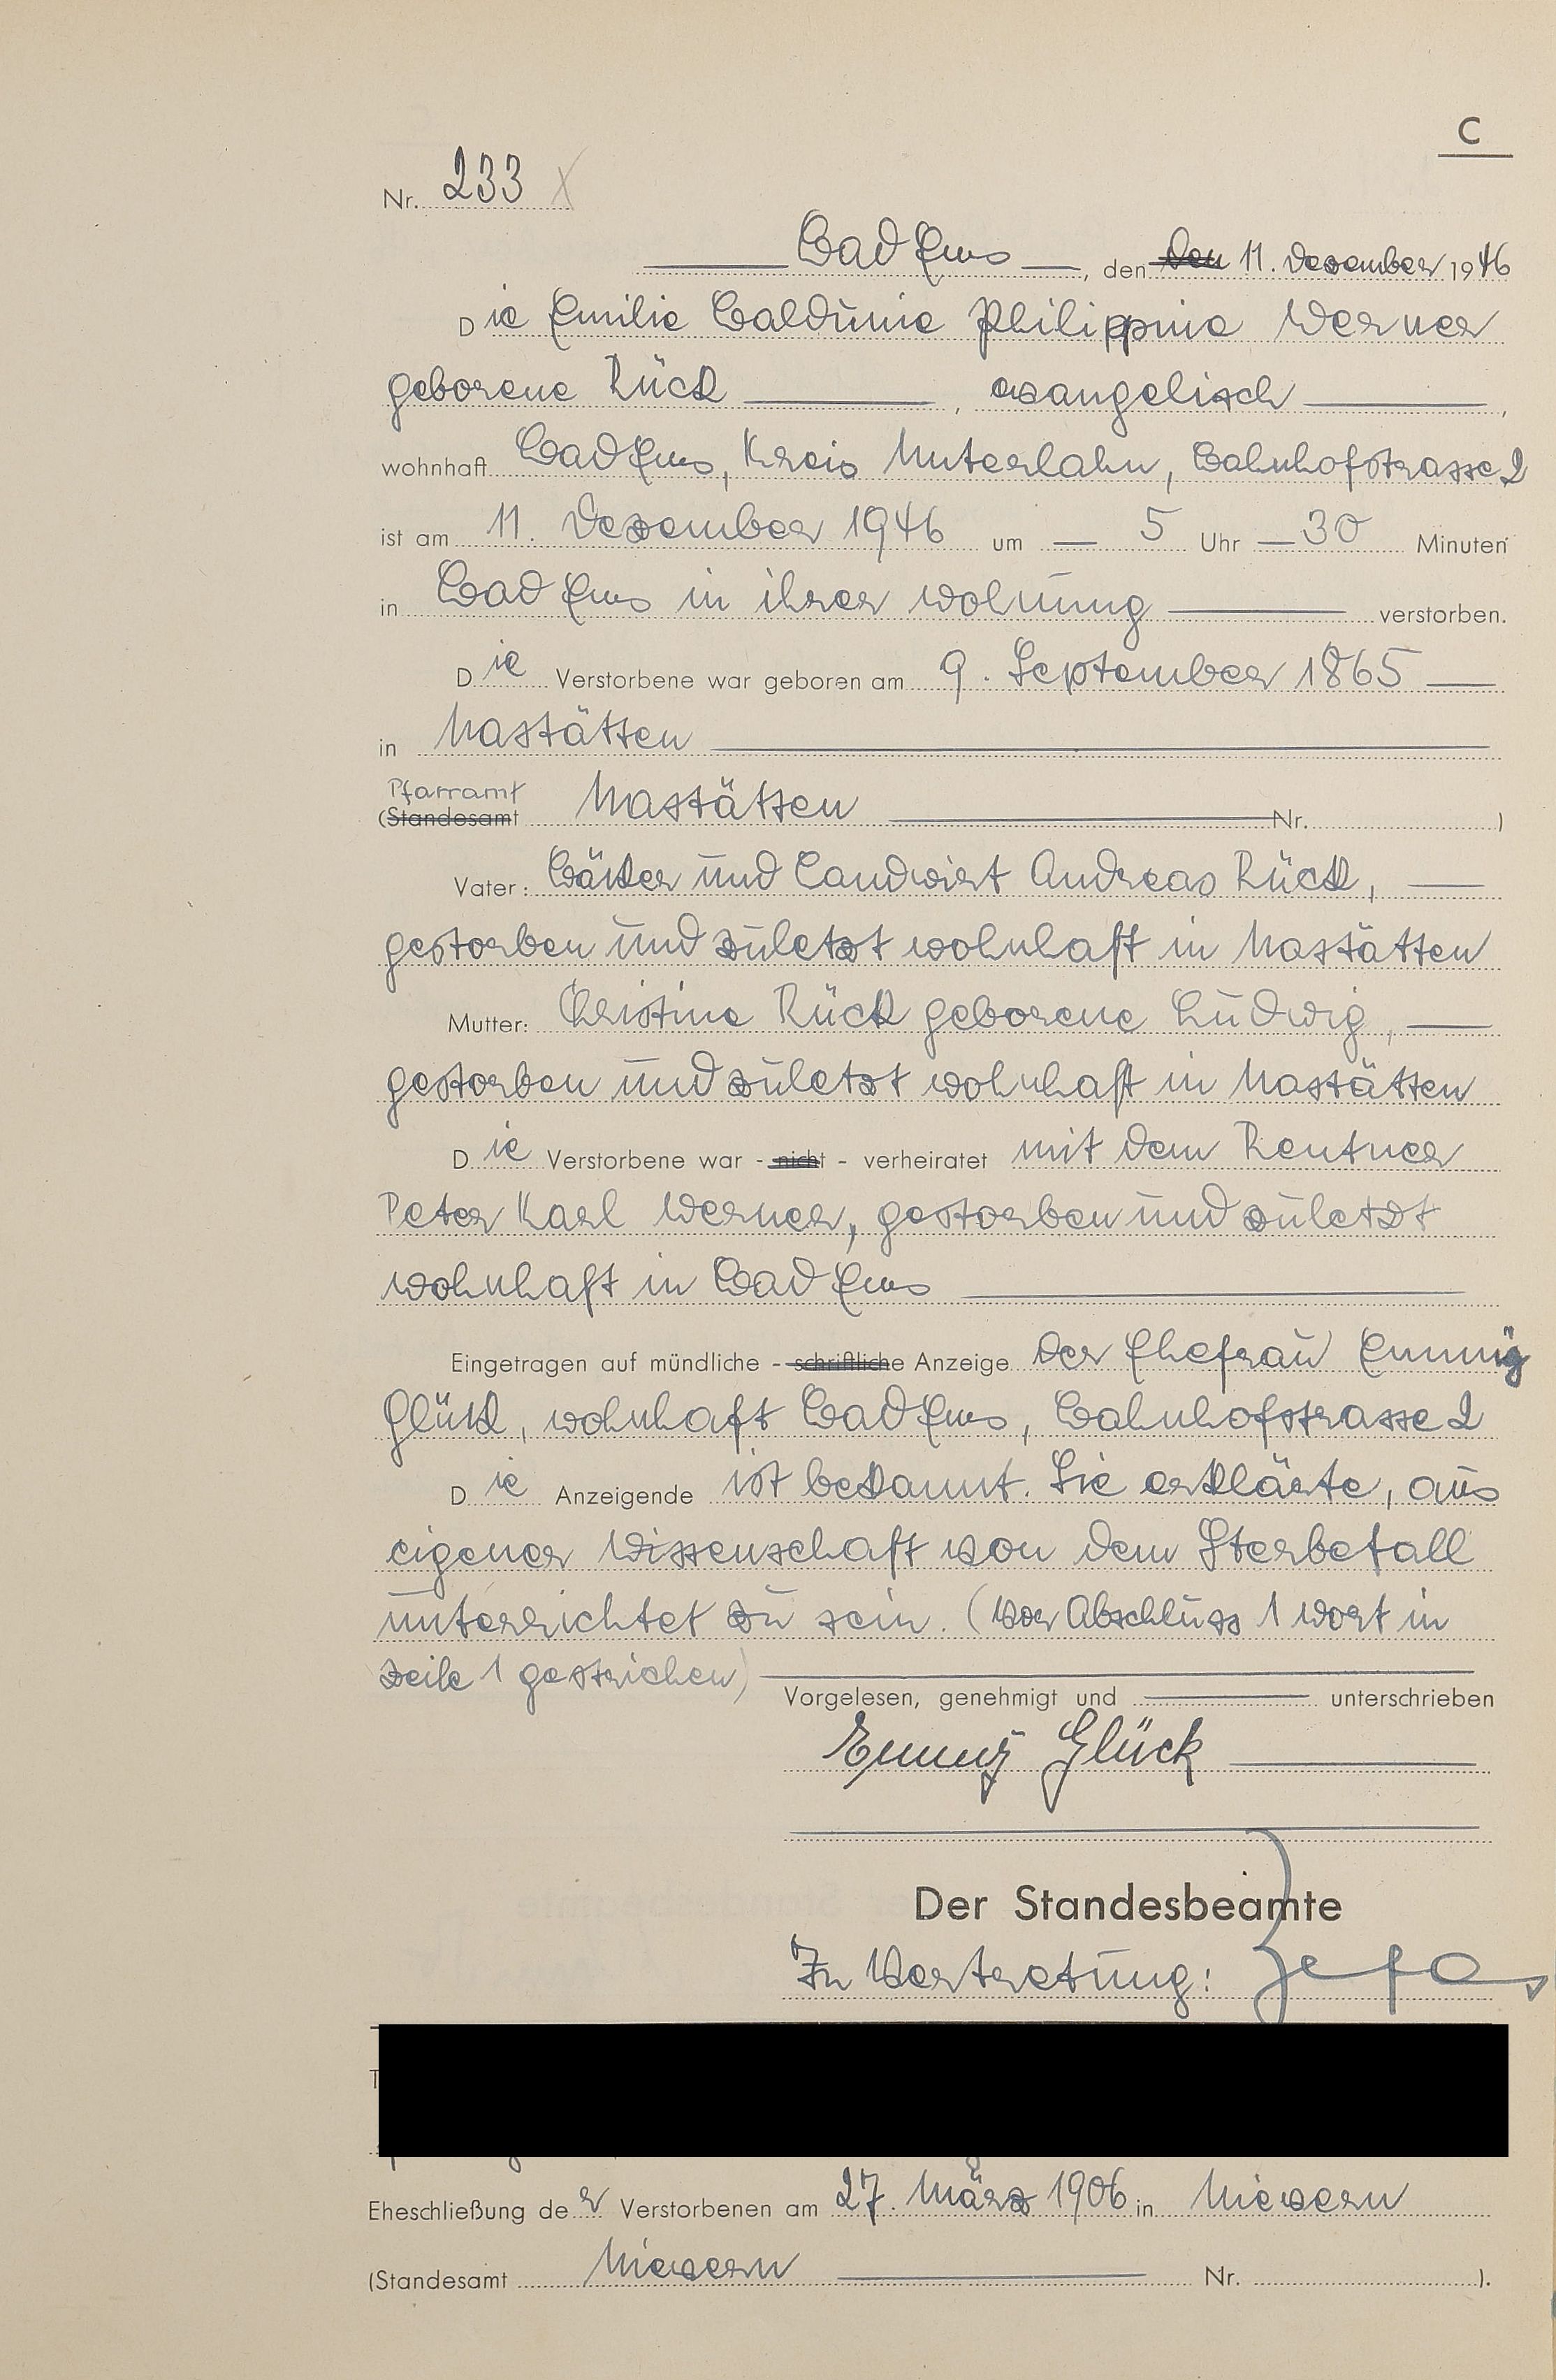 C
Nr. 233
Bad Ems, den den 11. Dezember 1946
Die Emilie Balduine Philippine Werner
geborene Rück, evangelisch,
wohnhaft Bad Ems, Kreis Unterlahn, Bahnhofstrasse 2
ist am 11. Dezember 1946 um 5 Uhr 30 Minuten
in Bad Ems in ihrer Wohnung verstorben.
Die Verstorbene war geboren am 9. September 1865
in Nastätten
Pfarramt
(Standesamt Nastätten Nr. )
Vater: Bäcker und Landwirt Andreas Rück,
gestorben und zuletzt wohnhaft in Nastätten
Mutter: Christine Rück geborene Ludwig,
gestorben und zuletzt wohnhaft in Nastätten
Die Verstorbene war - nicht - verheiratet mit dem Rentner
Peter Karl Werner, gestorben und zuletzt
wohnhaft in Bad Ems
Eingetragen auf mündliche - schriftliche Anzeige der Ehefrau Emmy
Glück, wohnhaft Bad Ems, Bahnhofstrasse 2
Die Anzeigende ist bekannt. Sie erklärte, aus
eigener Wissenschaft von dem Sterbefall
unterrichtet zu sein. (Vor Abschluss 1 Wort in
Zeile 1 gestrichen)
Vorgelesen, genehmigt und unterschrieben
Emmy Glück
Der Standesbeamte
In Vertretung:
Eheschließung der Verstorbenen am 27. März 1906 in Nievern
(Standesamt Nievern Nr. ).